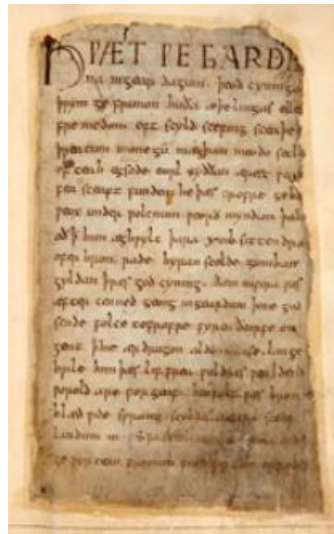 HǷÆT ǷE GARDE
na ingear dagum. þeod cyninga
þrym ge frunon huða æþelingas elle
fre medon. oft scyld scefing sceaþe
þreatum monegū mægþum meodo setla
of teah egsode eorl syððan ærest ƿea
fea sceaft funden he þæs frofre geba
ƿeox under ƿolcnum ƿeorð myndum þah
oð þ him æghƿylc þara ymb sittendra
ofer hron rade hyran scolde gomban
gyldan þ ƿæs god cyning. ðæm eafera ƿæs
æfter cenned geong in geardum þone god
sende folce tofrofre fyren ðearfe on
geat þ hie ær drugon aldor ase. lange
hƿile him þæs lif frea ƿuldres ƿealdend
ƿorold are for geaf. beoƿulf ƿæs breme
blæd ƿide sprang scyldes eafera scede
landum in.
ge ƿyrcean fromum feoh giftum on fæder